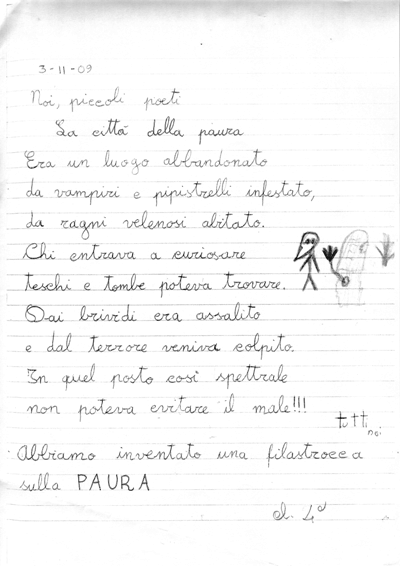 3-11-09
Noi, piccoli poeti
La città della paura
Era un luogo abbandonato
da vampiri e pipistrelli infestato,
da ragni velenosi abitato.
Chi entrava a curiosare
teschi e tombe poteva trovare.
Dai brividi era assalito
e dal terrore veniva colpito.
In quel posto così spettrale
non poteva evitare il male!!!
tutti noi
Abbiamo inventato una filastrocca
sulla PAURA